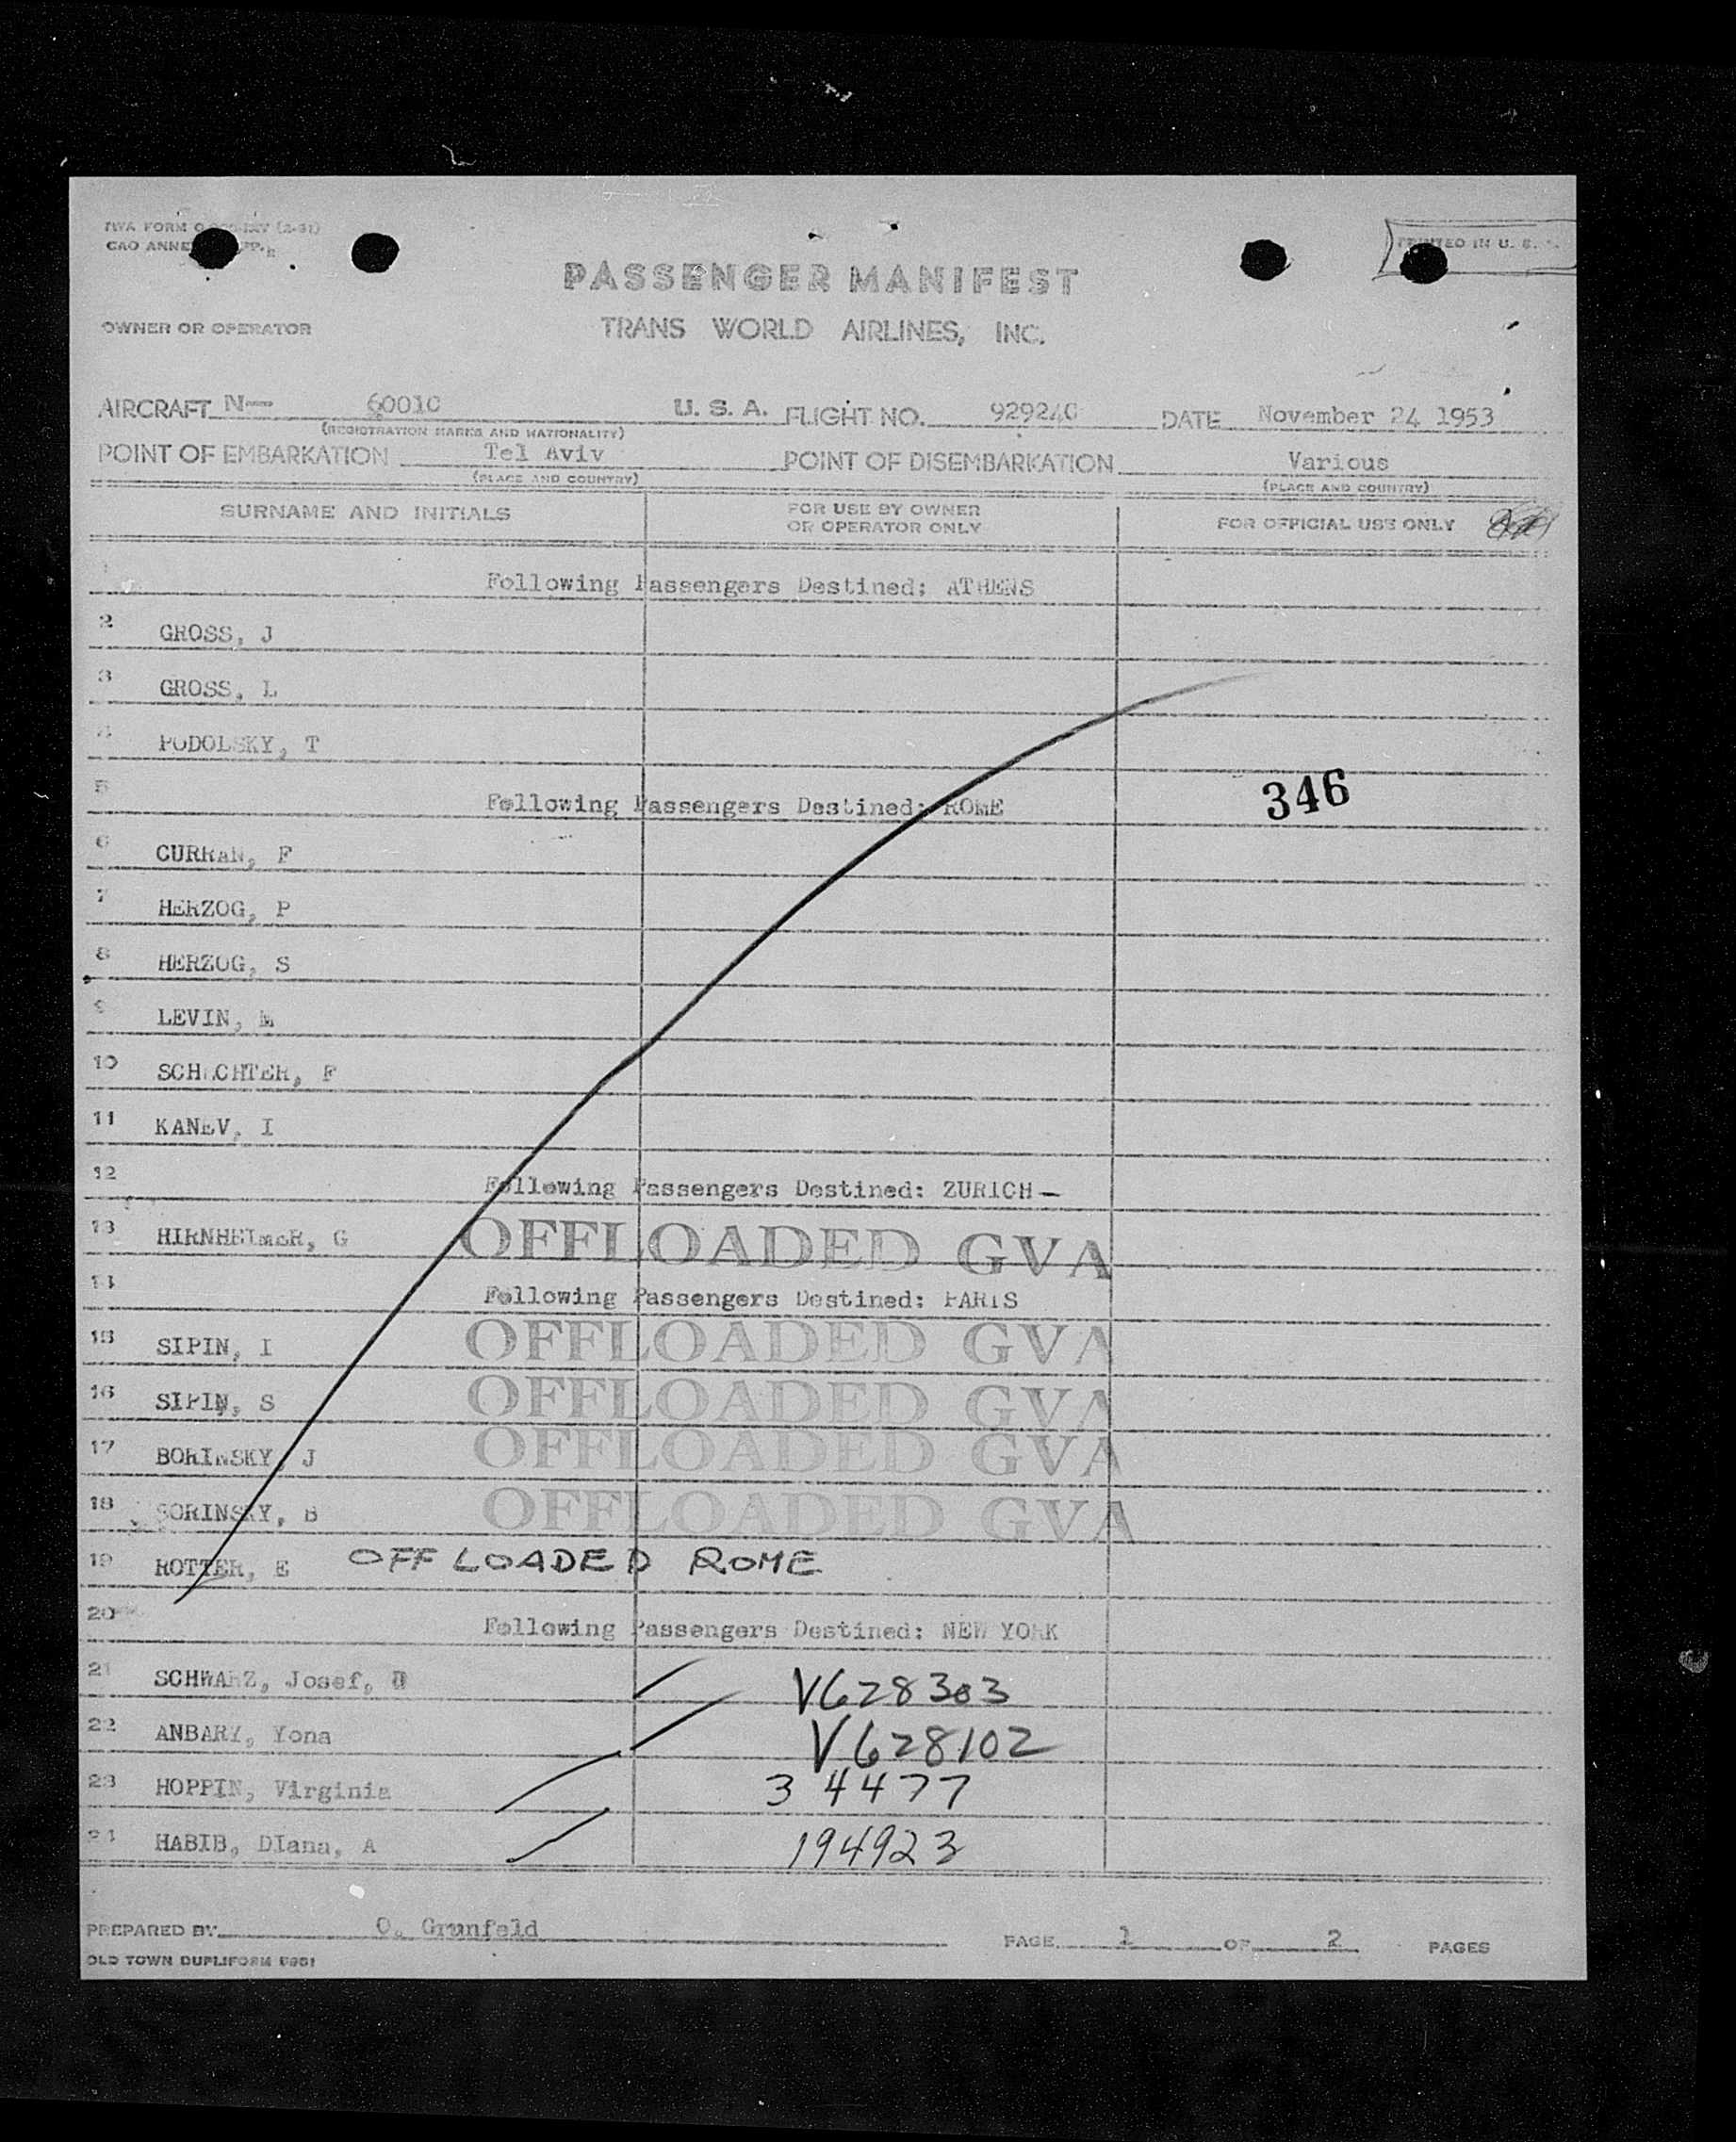 PRINTED IN U. S.
PASSENGER MANIFEST
OWNER OR OPERATOR TRANS WORLD AIRLINES, INC.
AIRCRAFT N— 60010 U. S. A. FLIGHT NO. 929240 DATE November 24 1953
(REGISTRATION MARKS AND NATIONALITY)
POINT OF EMBARKATION Tel Aviv POINT OF DISEMBARKATION Various
(PLACE AND COUNTRY) (PLACE AND COUNTRY)
SURNAME AND INITIALS FOR USE BY OWNER OR OPERATOR ONLY FOR OFFICIAL USE ONLY
1 Following Passengers Destined: ATHENS
2 GROSS, J
3 GROSS, L
4 PODOLSKY, T
5 Following Passengers Destined: ROME 346
6 CURRAN, F
7 HERZOG, P
8 HERZOG, S
9 LEVIN, M
10 SCHECHTER, F
11 KANEV, I
12 Following Passengers Destined: ZURICH —
13 HIRNHEIMER, G OFFLOADED GVA
14 Following Passengers Destined: PARIS
15 SIPIN, I OFFLOADED GVA
16 SIPIN, S OFFLOADED GVA
17 BORINSKY, J OFFLOADED GVA
18 BORINSKY, B OFFLOADED GVA
19 ROTTER, E OFF LOADED ROME
20 Following Passengers Destined: NEW YORK
21 SCHWARZ, Josef, D V628303
22 ANBARY, Yona V628102
23 HOPPIN, Virginia 34477
24 HABIB, DIana, A 194923
PREPARED BY O. Grunfeld PAGE 1 OF 2 PAGES
OLD TOWN DUPLIFORM